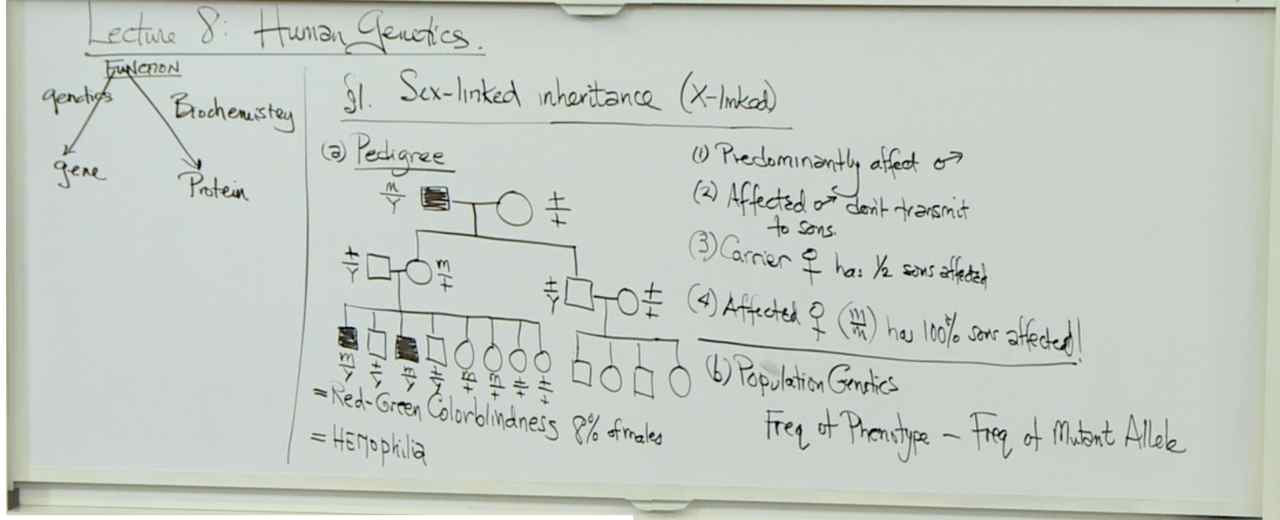 Lecture 8: Human Genetics.
FUNCTION
genetics
Biochemistry
gene
Protein
§1. Sex-linked inheritance (X-linked)
(a) Pedigree
m/Y
+/+
+/Y
m/+
+/Y
+/+
m/Y +/Y m/Y +/Y m/+ m/+ +/+ +/+
= Red-Green Colorblindness 8% of males
= HEMophilia
(1) Predominantly affect ♂
(2) Affected ♂ don't transmit
to sons.
(3) Carrier ♀ has 1/2 sons affected
(4) Affected ♀ (m/m) has 100% sons affected!
(b) Population Genetics
Freq of Phenotype - Freq of Mutant Allele